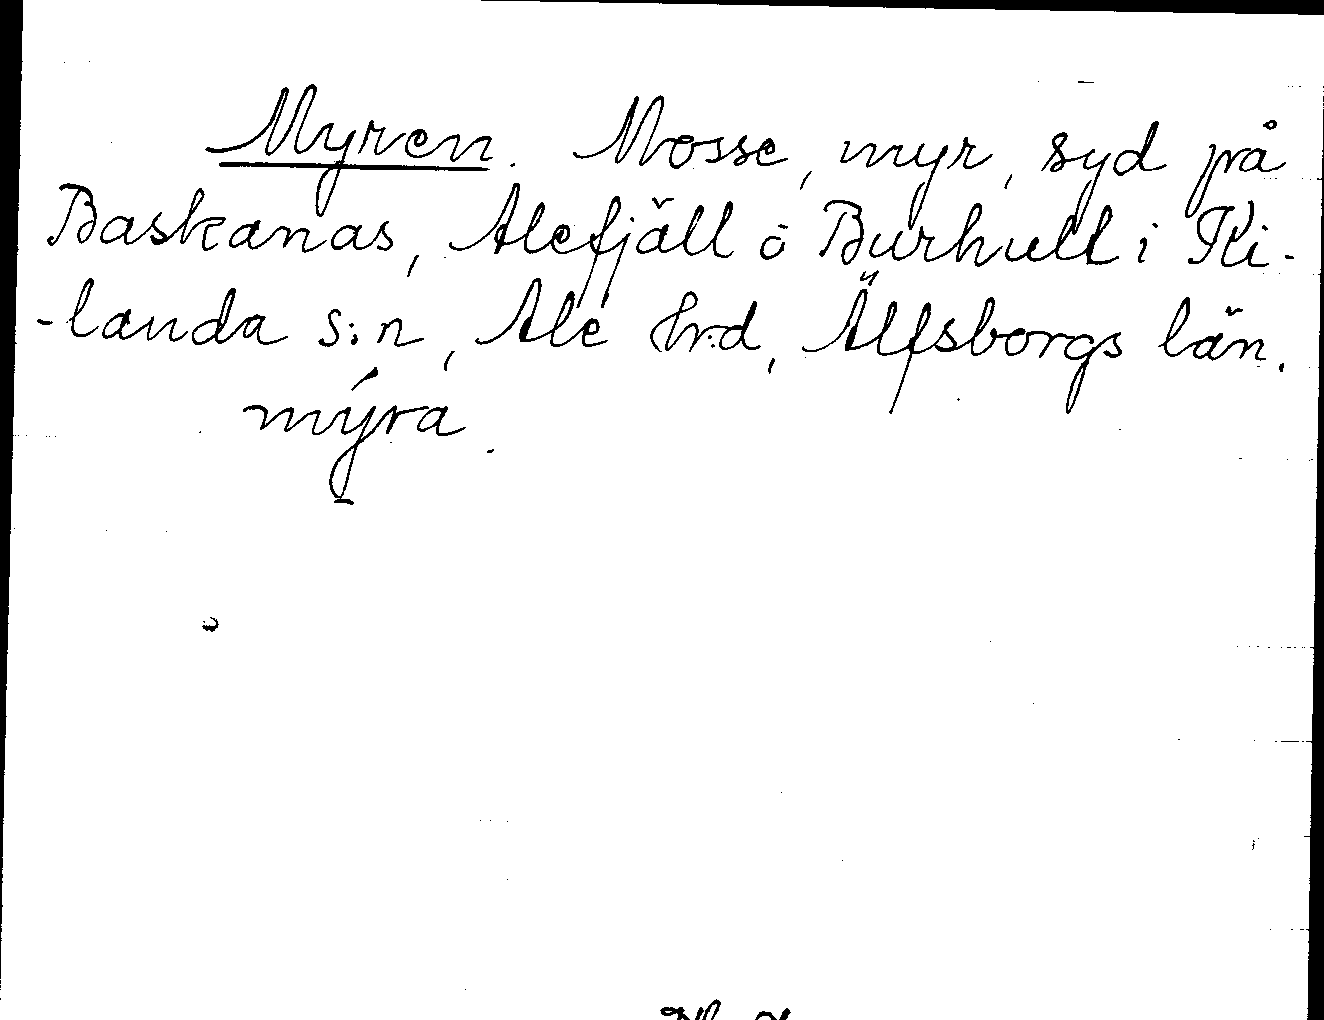 Myren. Mosse, myr, syd på
Baskanas, Alefjäll ö Burhult i Ki-
-landa s:n, Ale hrd, Älfsborgs län.
mýra.